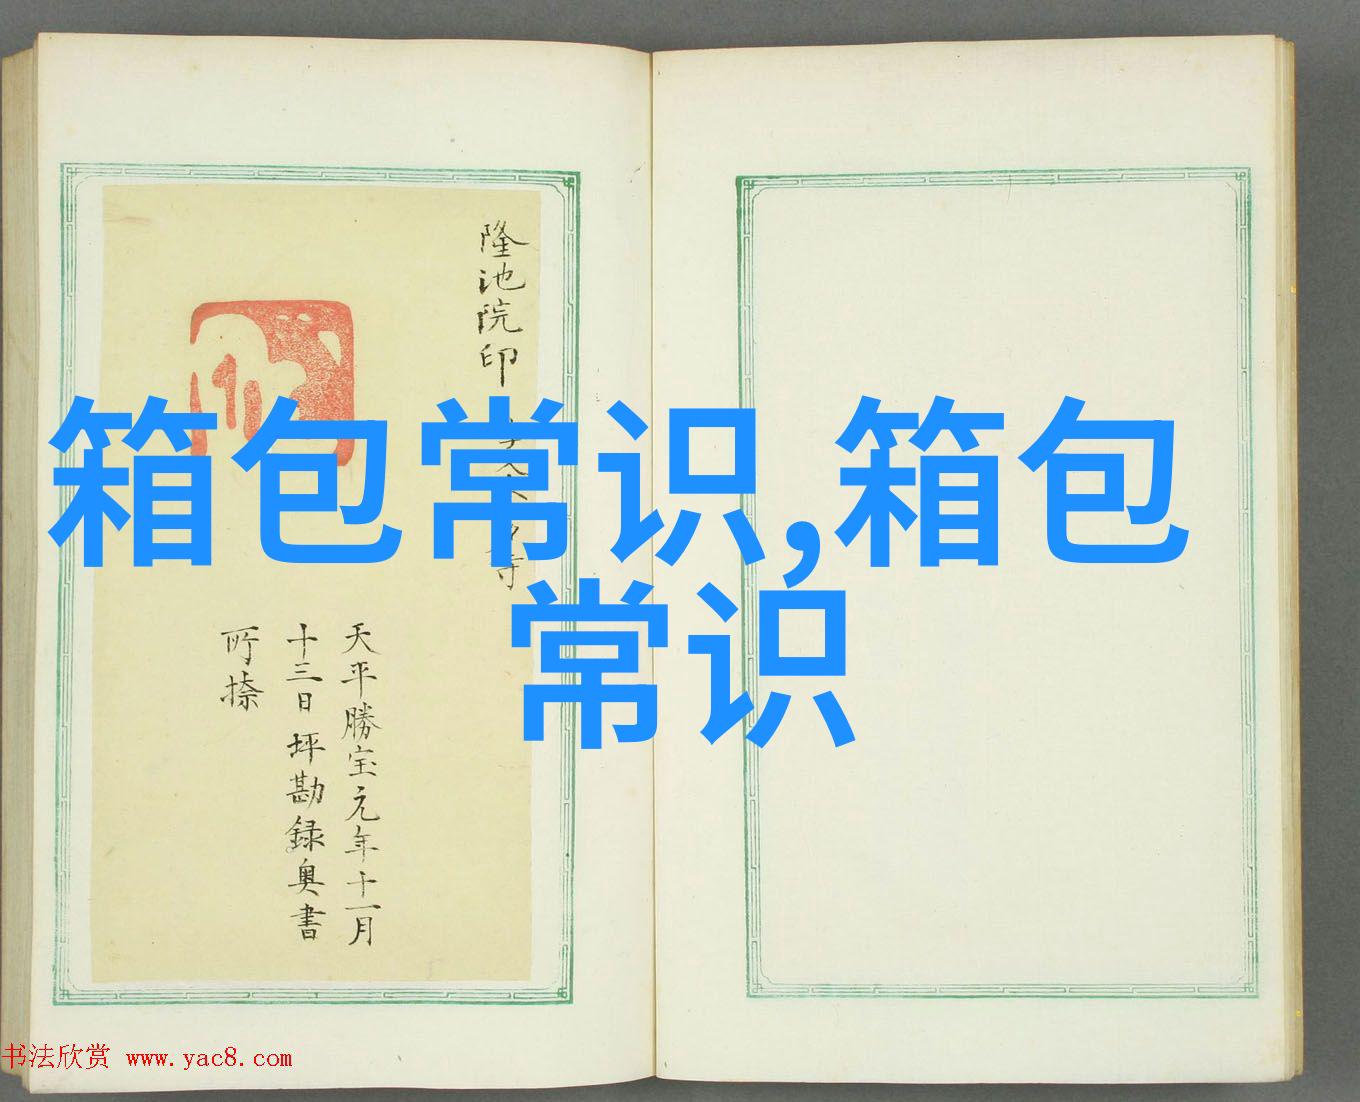 隆池院印
寺
天平勝宝元年十一月
十三日坪勘録奥書
所捺
箱包常识,箱包
常识
书法欣赏 www.yac8.com